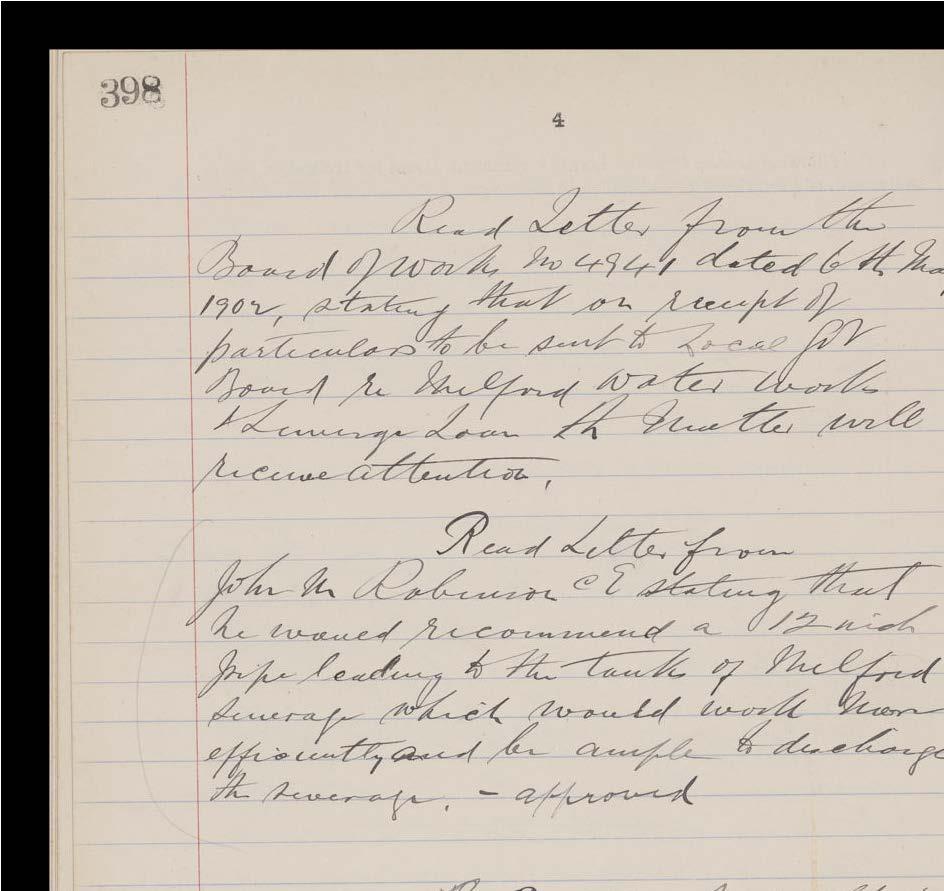 398
4
Read Letter from the
Board of Works No 4941 dated 6th Ma
1902, stating that on receipt of
particulars to be sent to Local Gov
Board re Milford Water Works
& Sewerage Loan the Matter will
receive attention.
Read Letter from
John M Robinson CE stating that
he would recommend a 12 inch
pipe leading to the tanks of Milford
sewerage which would work more
efficiently and be ample to discharge
the sewerage. - approved